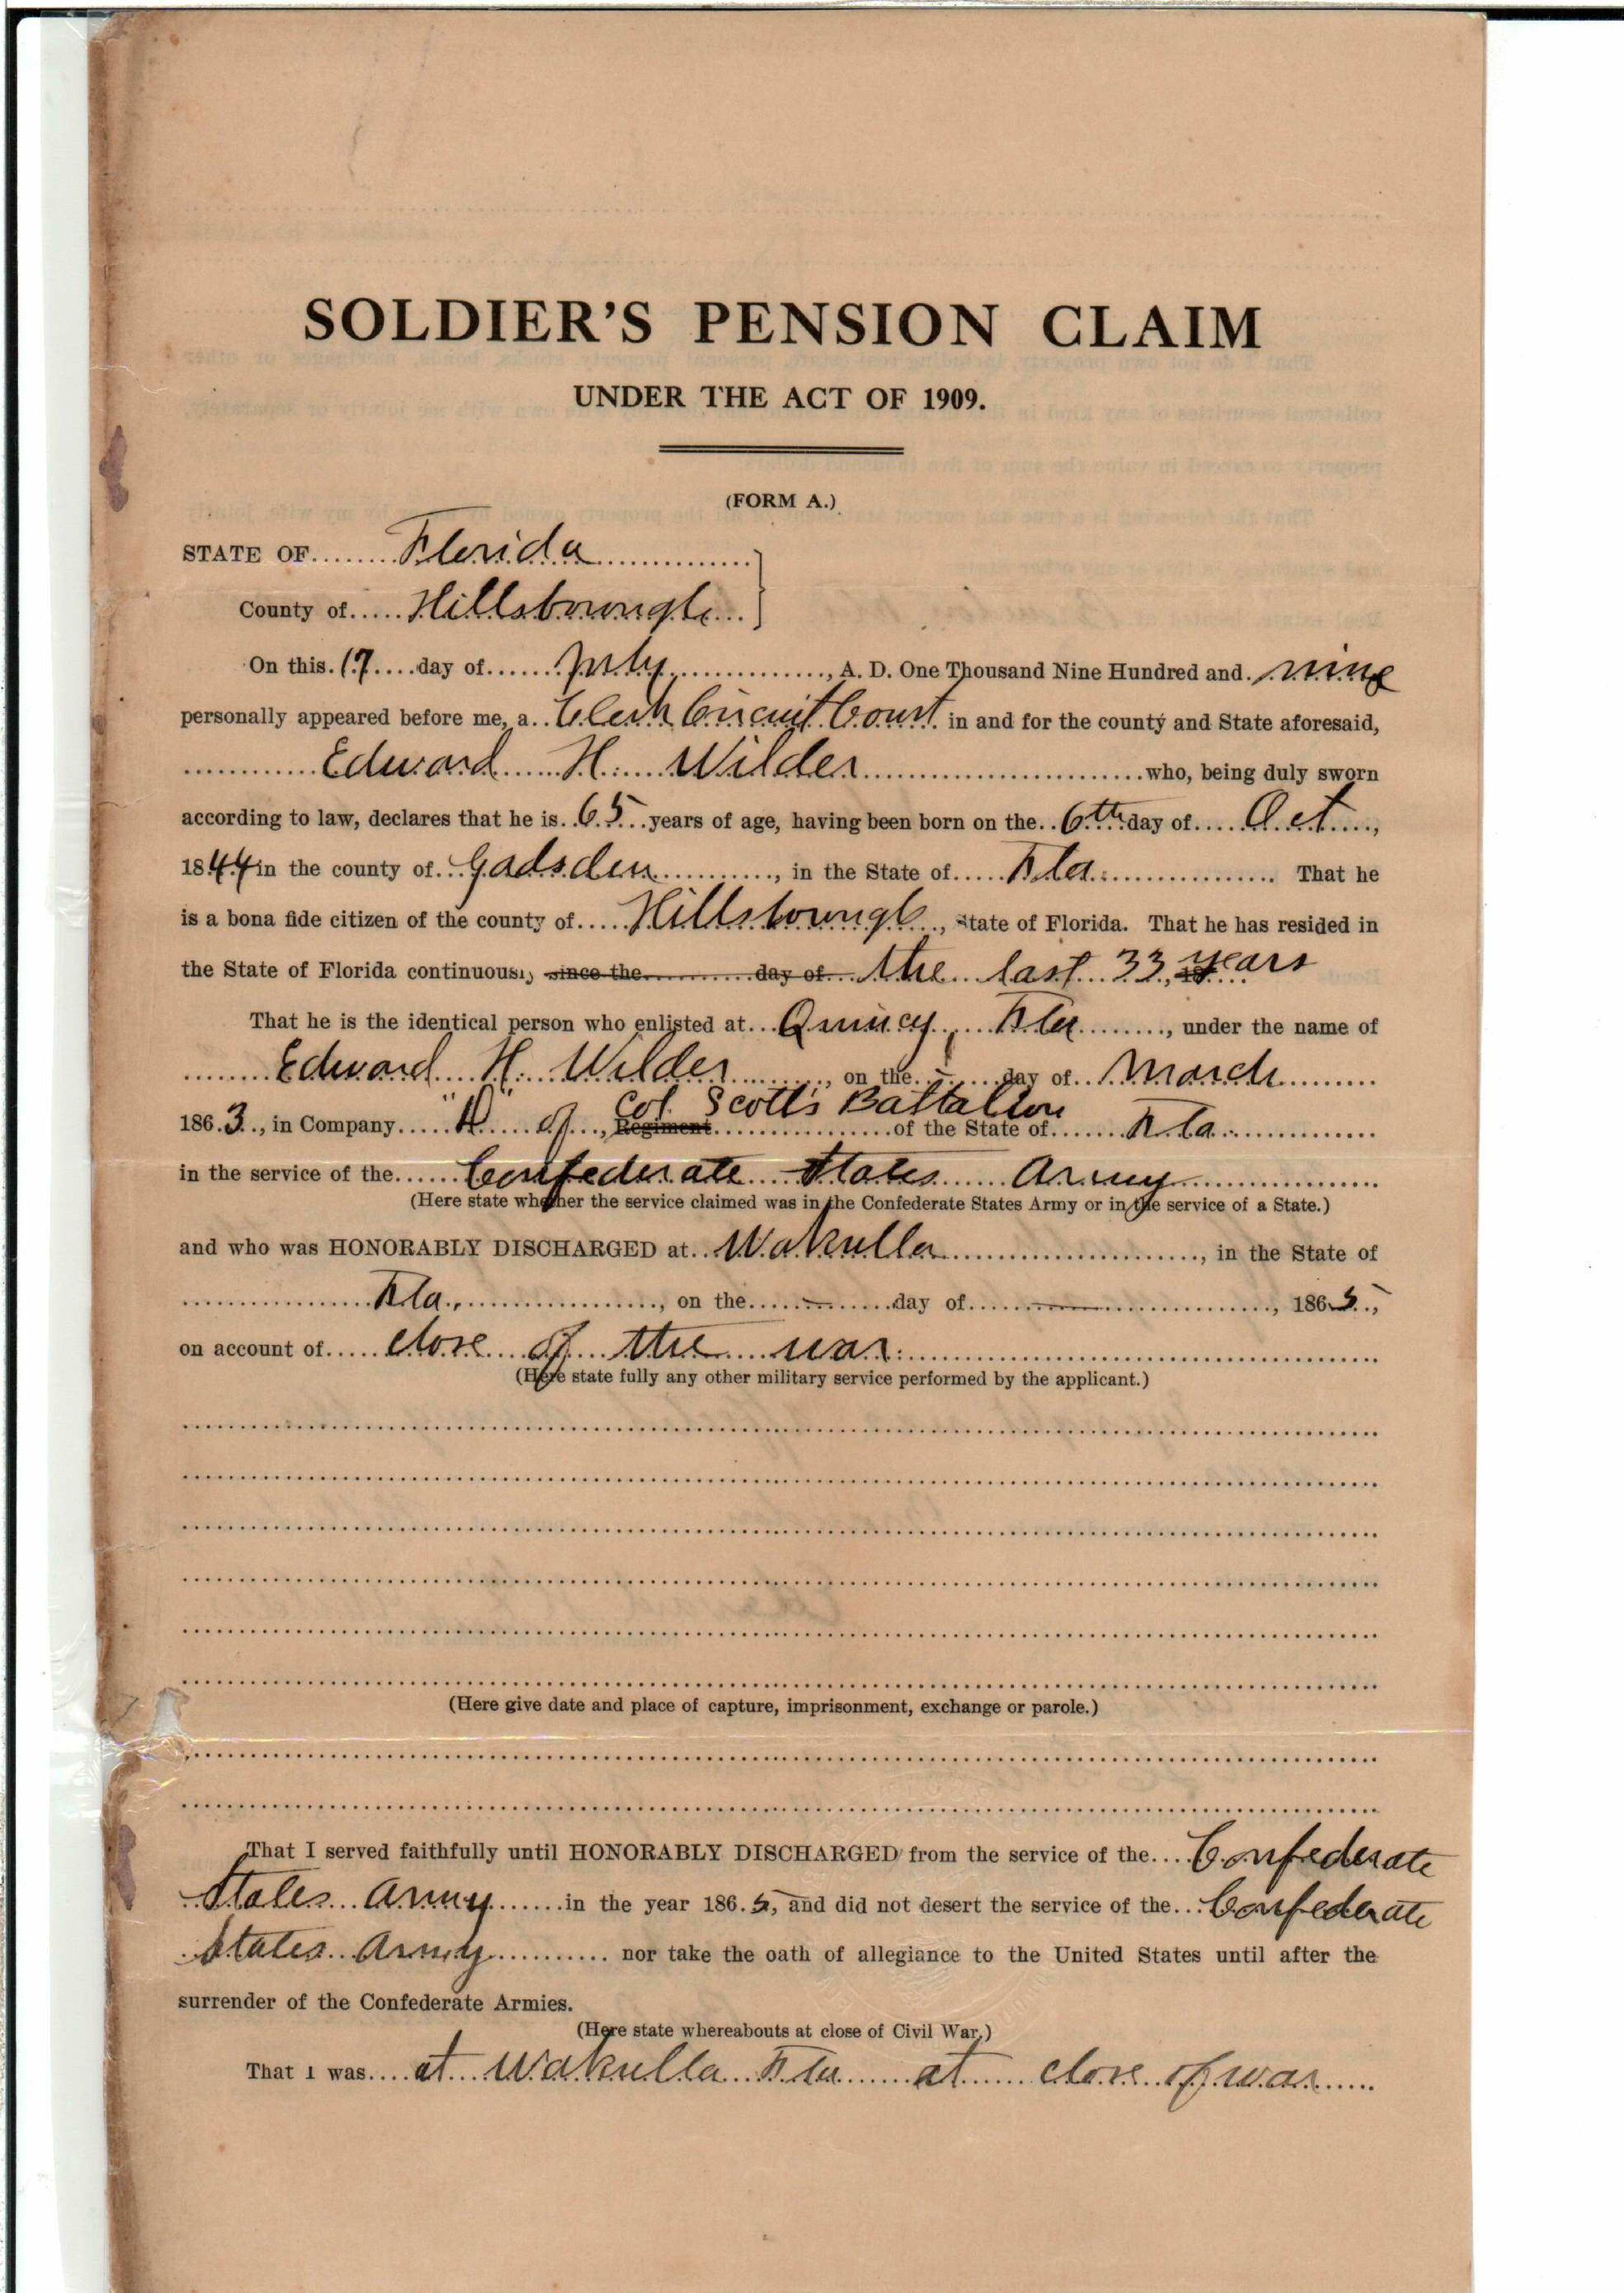 SOLDIER'S PENSION CLAIM
UNDER THE ACT OF 1909.
(FORM A.)
STATE OF Florida
County of Hillsborough
On this 17 day of July, A. D. One Thousand Nine Hundred and nine
personally appeared before me, a Clerk Circuit Court in and for the county and State aforesaid,
Edward H. Wilder who, being duly sworn
according to law, declares that he is 65 years of age, having been born on the 6th day of Oct,
1844 in the county of Gadsden, in the State of Fla. That he
is a bona fide citizen of the county of Hillsborough, State of Florida. That he has resided in
the State of Florida continuously since the day of the last 33, 18 years
That he is the identical person who enlisted at Quincy, Fla, under the name of
Edward H. Wilder, on the - day of March
Col. Scott's Battalion
1863, in Company of, Regiment of the State of Fla.
in the service of the Confederate States Army
(Here state whether the service claimed was in the Confederate States Army or in the service of a State.)
and who was HONORABLY DISCHARGED at Wakulla, in the State of
Fla., on the — day of —, 1865,
on account of close of the war.
(Here state fully any other military service performed by the applicant.)
(Here give date and place of capture, imprisonment, exchange or parole.)
That I served faithfully until HONORABLY DISCHARGED from the service of the Confederate
States Army in the year 1865, and did not desert the service of the Confederate
States Army nor take the oath of allegiance to the United States until after the
surrender of the Confederate Armies.
(Here state whereabouts at close of Civil War.)
That I was at Wakulla Fla at close of war